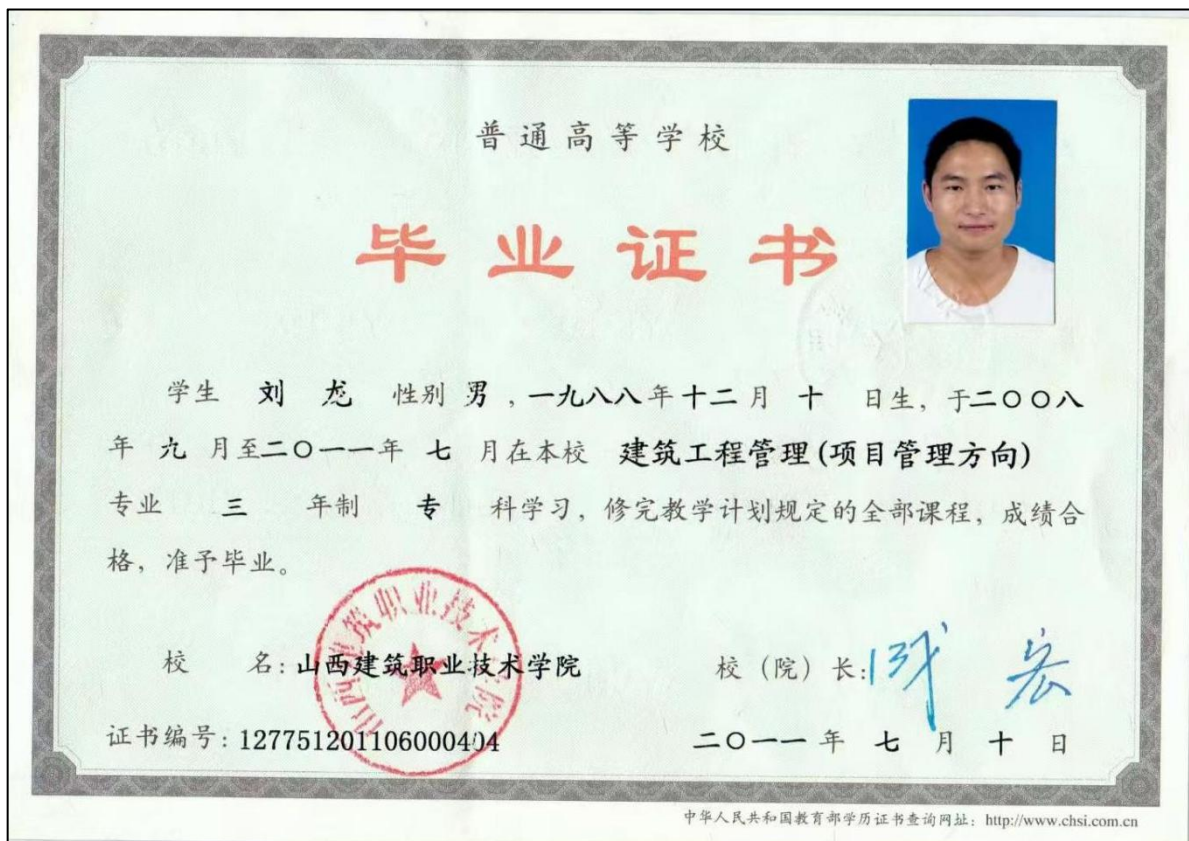 普通高等学校
毕业证书
学生 刘龙 性别 男，一九八八年十二月 十 日生，于二〇〇八
年 九 月至二〇一一年 七 月在本校 建筑工程管理(项目管理方向)
专业 三 年制 专 科学习，修完教学计划规定的全部课程，成绩合
格，准予毕业。
山西建筑职业技术学院
校 名：山西建筑职业技术学院 校（院）长：
证书编号：127751201106000404 二〇一一年 七 月 十 日
中华人民共和国教育部学历证书查询网址：http://www.chsi.com.cn